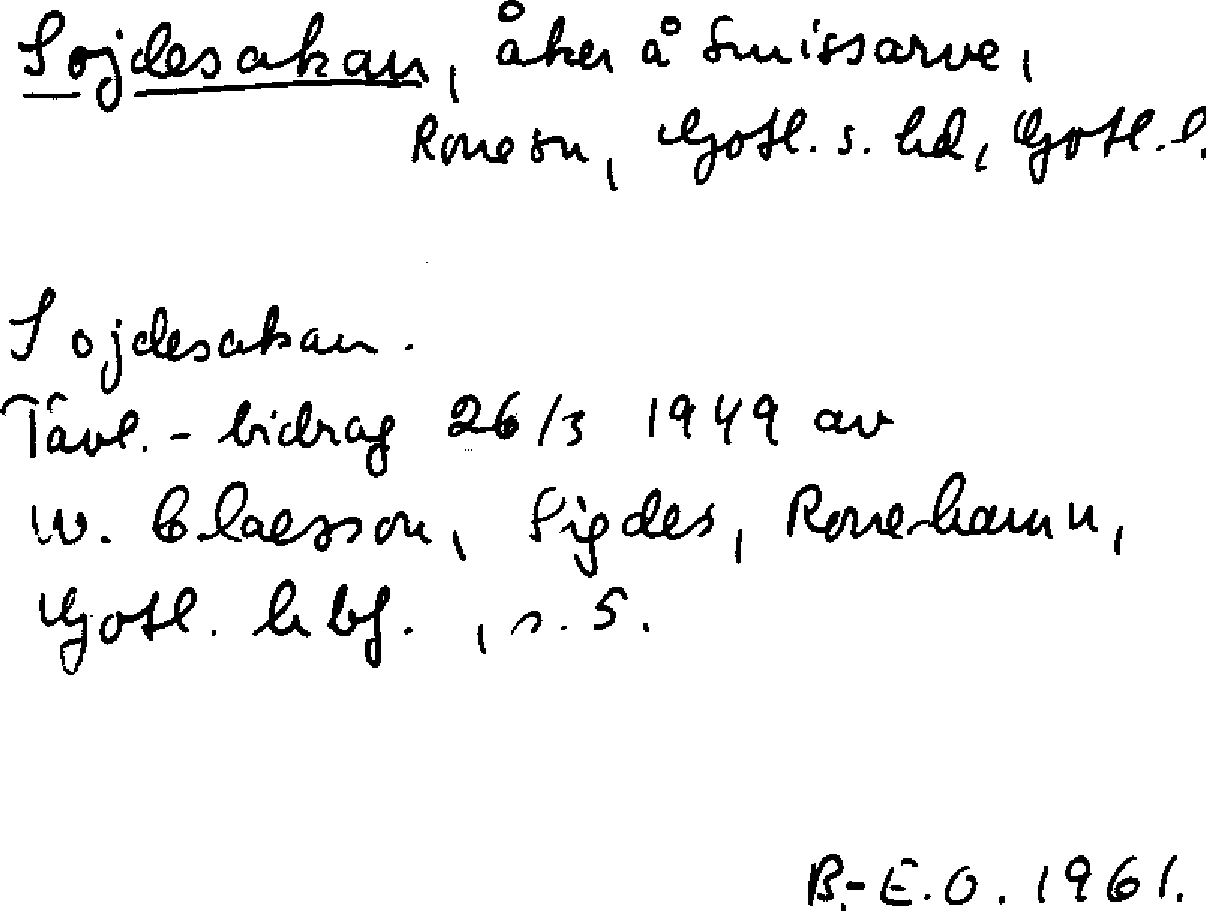 Sojdesakan, åker å Smissarve,
Rone sn, Gotl. s. hd, Gotl. l.
Sojdesakan.
Tävl.-bidrag 26/3 1949 av
W. Claesson, Sigdes, Ronehamn,
Gotl. hbf., s. 5.
B.-E.O. 1961.